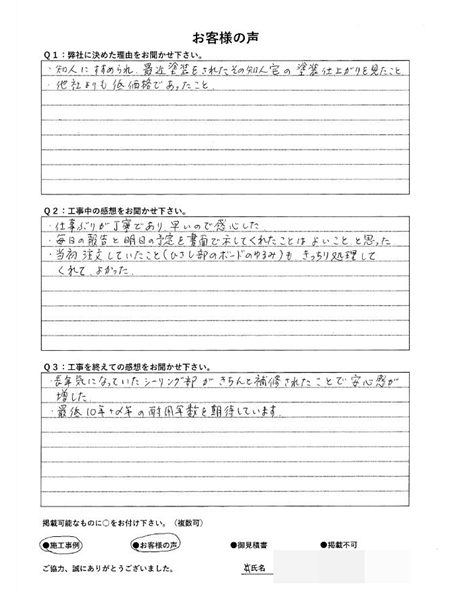 お客様の声
Q1：弊社に決めた理由をお聞かせ下さい。
・知人にすすめられ、最近塗装をされたその知人宅の塗装仕上がりを見たこと
・他社よりも低価格であったこと。
Q2：工事中の感想をお聞かせ下さい。
・仕事ぶりが丁寧であり、早いので感心した。
・毎日の報告と明日の予定を書面で示してくれたことはよいことと思った
・当初注文していたこと(ひさし部のボードのゆるみ)も、きっちり処理して
くれて、よかった。
Q3：工事を終えての感想をお聞かせ下さい。
・長年気になっていたシーリング部がきちんと補修されたことで安心感が
増した
・最低10年+α年の耐用年数を期待しています。
掲載可能なものに○をお付け下さい。（複数可）
●施工事例 ●お客様の声 ●御見積書 ●掲載不可
ご協力、誠にありがとうございました。 氏名